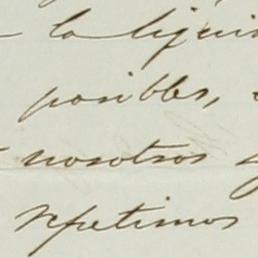 la liqui
posibles,
nosotros y
repetimos